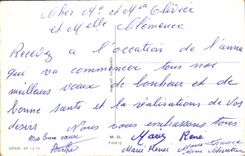 Cher Mr et Mme Olivier
et Melle Clémence
Recevez a l'occation de l'année
qui va commencer tous nos
meilleurs vœux de bonheur et de
bonne santé et la réalisations de vos
desirs Nous vous embrassons tous
M.D. Marie René
PARIS Marie Renée Marie
SERIE Nº 1214